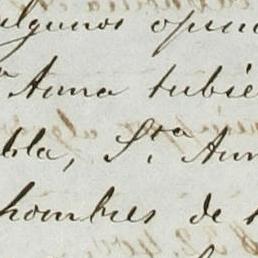 algunos opin
Anna tubie
bla, S.ta Ann
hombres de